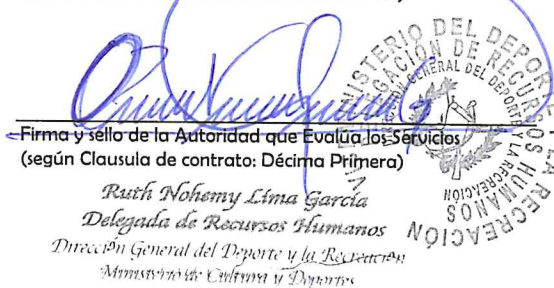 Firma y sello de la Autoridad que Evalúa los Servicios
(según Clausula de contrato: Décima Primera)
Ruth Nohemy Lima García
Delegada de Recursos Humanos
Dirección General del Deporte y la Recreación
Ministerio de Cultura y Deportes
DELEGACIÓN DE RECURSOS HUMANOS
DIRECCIÓN GENERAL DEL DEPORTE Y LA RECREACIÓN